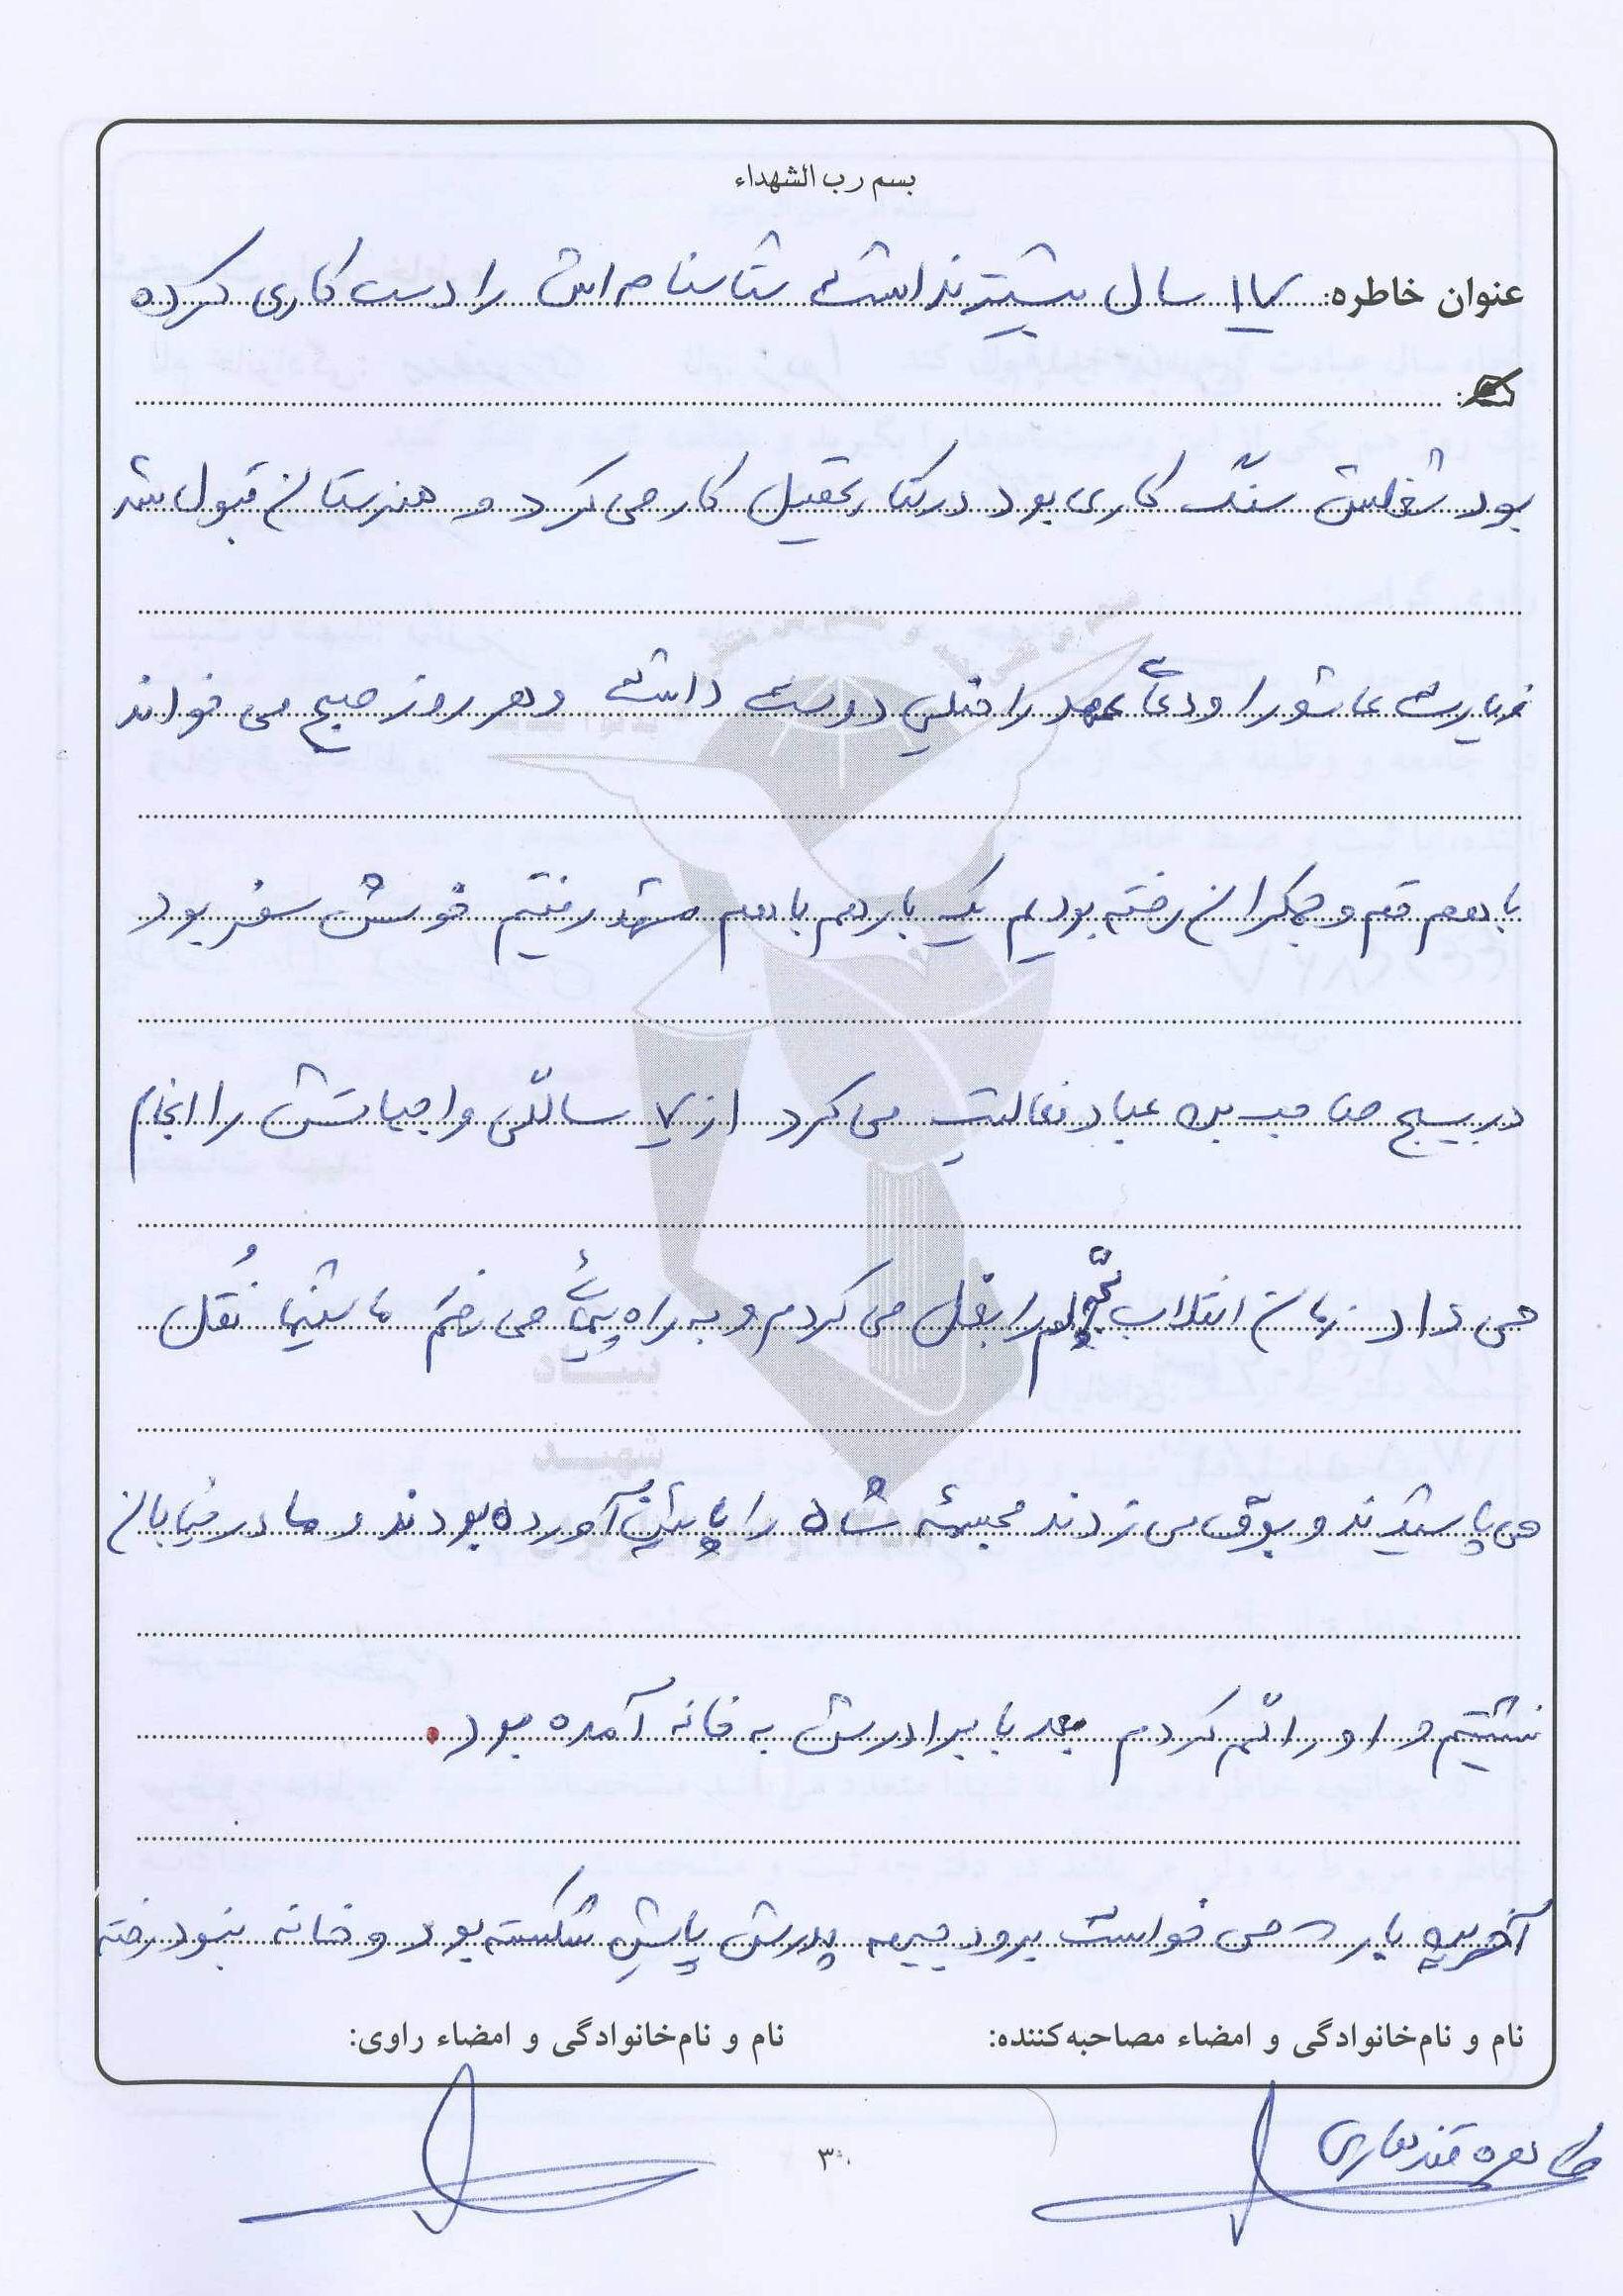 بسم رب الشهداء
عنوان خاطره: ۱۷ سال بیشتر نداشت شناسنامه‌اش را دست کاری کرده
بود شغلش سنگ کاری بود در کنار تحصیل کار می کرد و هنرستان قبول شد
زیارت عاشورا و دعای عهد را خیلی دوست داشت و هر روز صبح می خواند
با هم قم و جمکران رفته بودیم یک بار هم با هم مشهد رفتیم خوش سفر بود
در بسیج صاحب عباد فعالیت می کرد از ۷ سالگی واجباتش را انجام
می داد زمان انقلاب بچه را بغل می کردم و به راه پیمائی می رفتم ماشینها نُقل
می پاشیدند و بوق می زدند مجسمه شاه را پائین آورده بودند و ما در خیابان
نشستیم و او را گم کردم بعد با برادرش به خانه آمده بود.
آخرین بار می خواست برود جبهه پدرش پایش شکسته بود و خانه نبود رفته
نام و نام‌خانوادگی و امضاء مصاحبه‌کننده: نام و نام‌خانوادگی و امضاء راوی:
طاهره قندهاری
۳۰
بنیاد
شهید